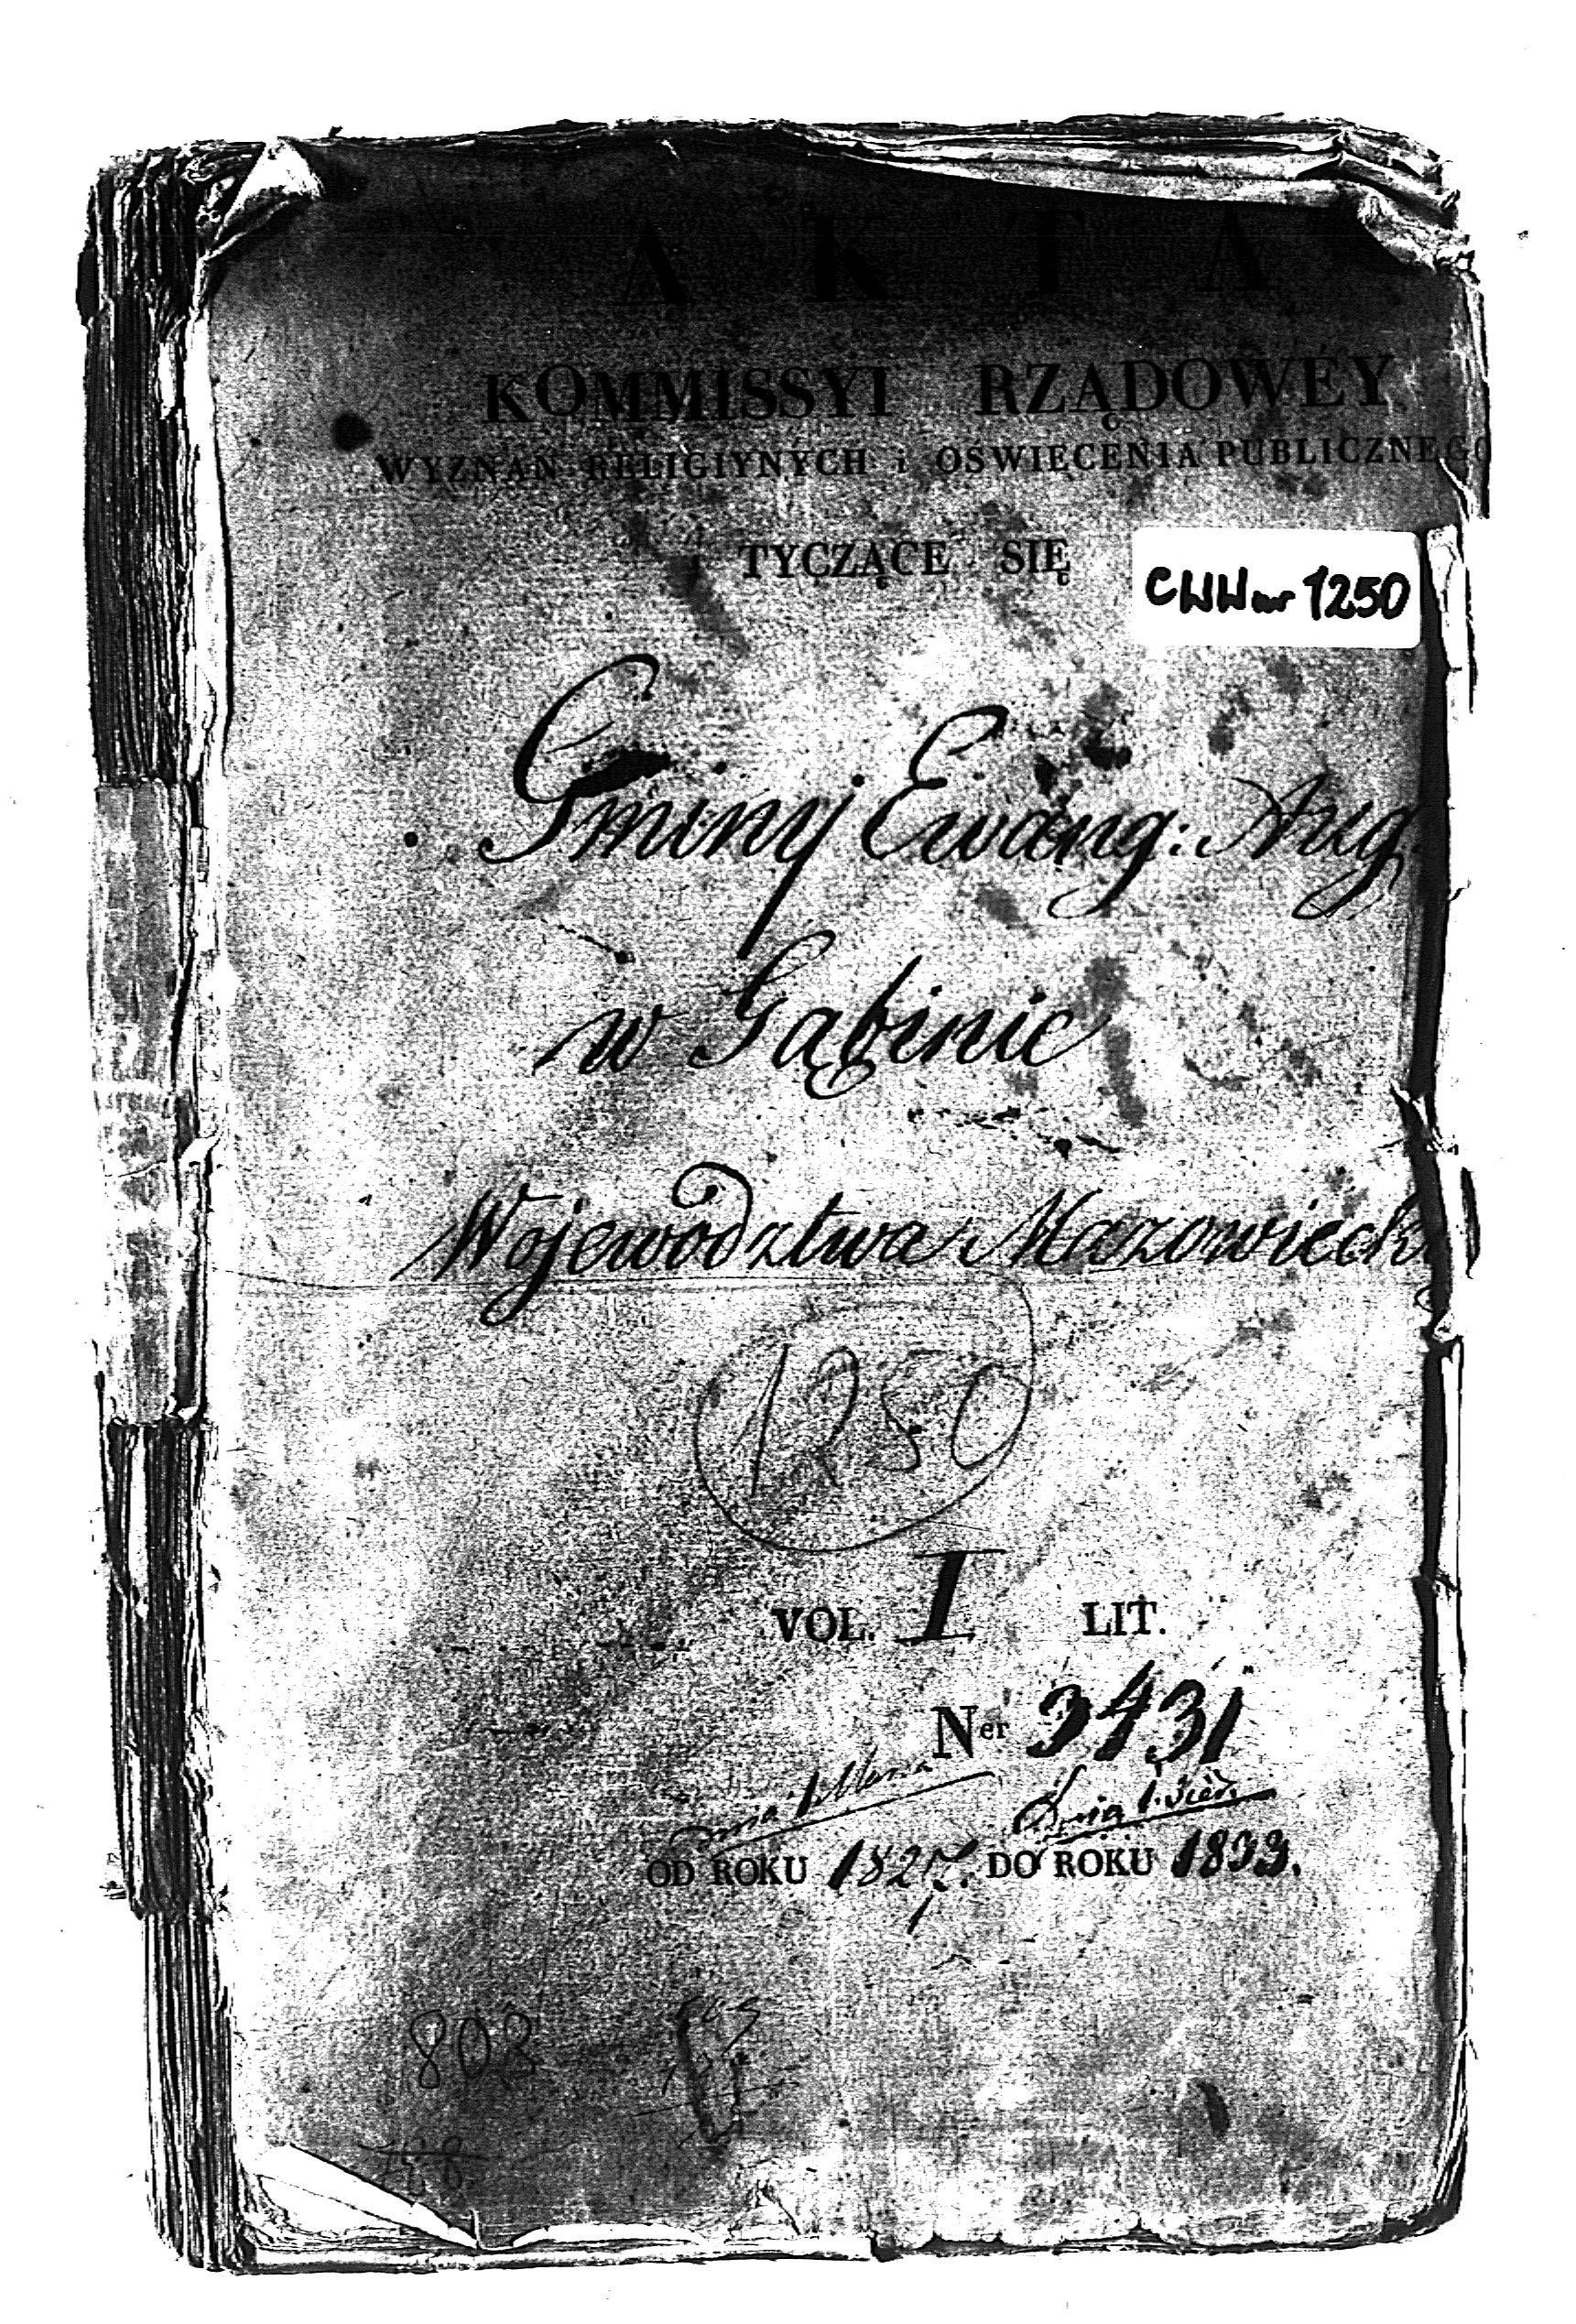 AKTA
KOMMISSYI RZĄDOWÉY
WYZNAŃ RELIGIYNYCH i OŚWIĘCENIA PUBLICZNEGO
TYCZĄCE SIĘ
CWW nr 1250
Gminy Ewang: Aug.
w Gąbinie
Województwa Mazowieck
1250
VOL. I LIT.
Ner 3431
Dnia
OD ROKU 1827. DO ROKU 1833.
803